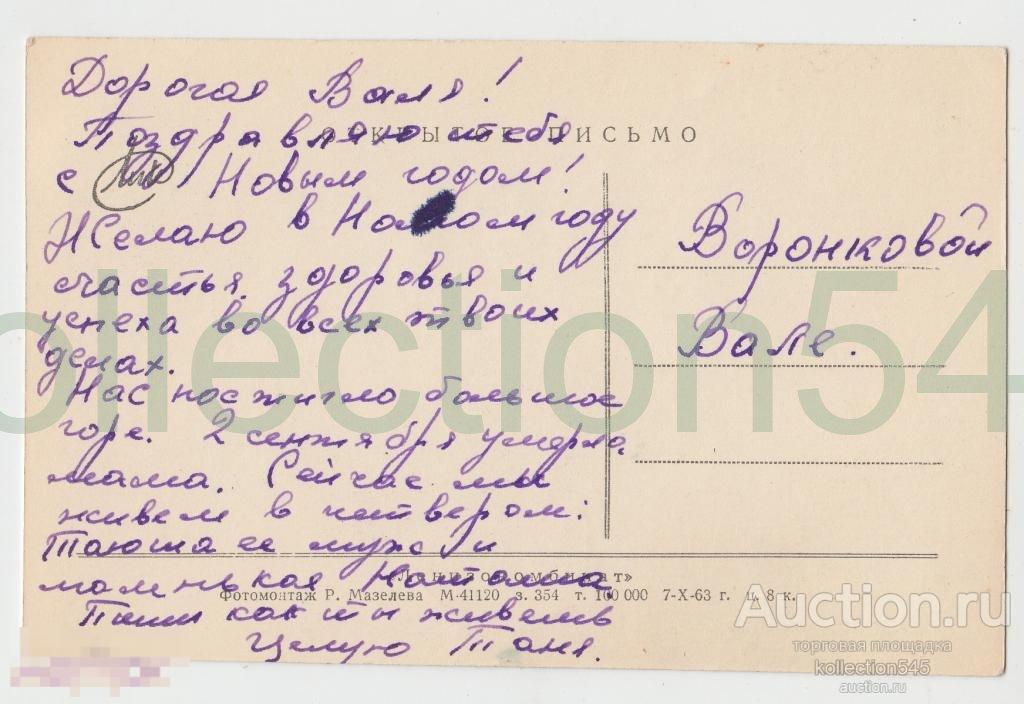 Дорогая Валя!
ОТКРЫТОЕ ПИСЬМО
Поздравляю тебя
с Новым годом!
Желаю в Новом году
счастья, здоровья и
успеха во всех твоих
делах.
Нас постигло большое
горе. 2 сентября умерла
мама. Сейчас мы
живем в четвером:
Таюша ее муж и
маленькая Наташа
Пиши как ты живешь
Целую Таня.
Воронковой
Вале.
"Ленизокомбинат"
Фотомонтаж Р. Мазелева М-41120 з. 354 т. 100 000 7-X-63 г. ц. 8 к.
collection54
Auction.ru
торговая площадка
kollection545
auction.ru